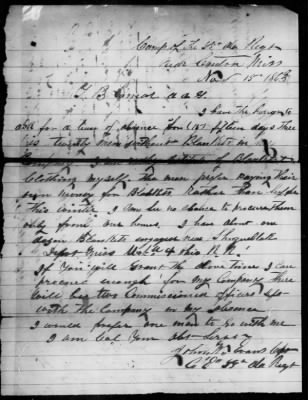 Camp of the 35th Ala Regt
Near Canton Miss
Nov 15th 1863
I have the honor to
ask for a leave of absence for (15) fifteen days there
is twenty men without Blankets in
Company I am in
Clothing myself The men prefer paying their
own money for Blankets Rather than suffer
this winter I can see no chance to procure them
only from our homes. I have about one
dozen Blankets engaged near
Depot Miss R. R.
If You will Grant the above time I can
procure enough for my Company there
will be two Commissioned officers left
with the Company in my absence
I would prefer one man to go with me
I am Col Your obt Servt
John Evans Capt
Co 35th Ala Regt